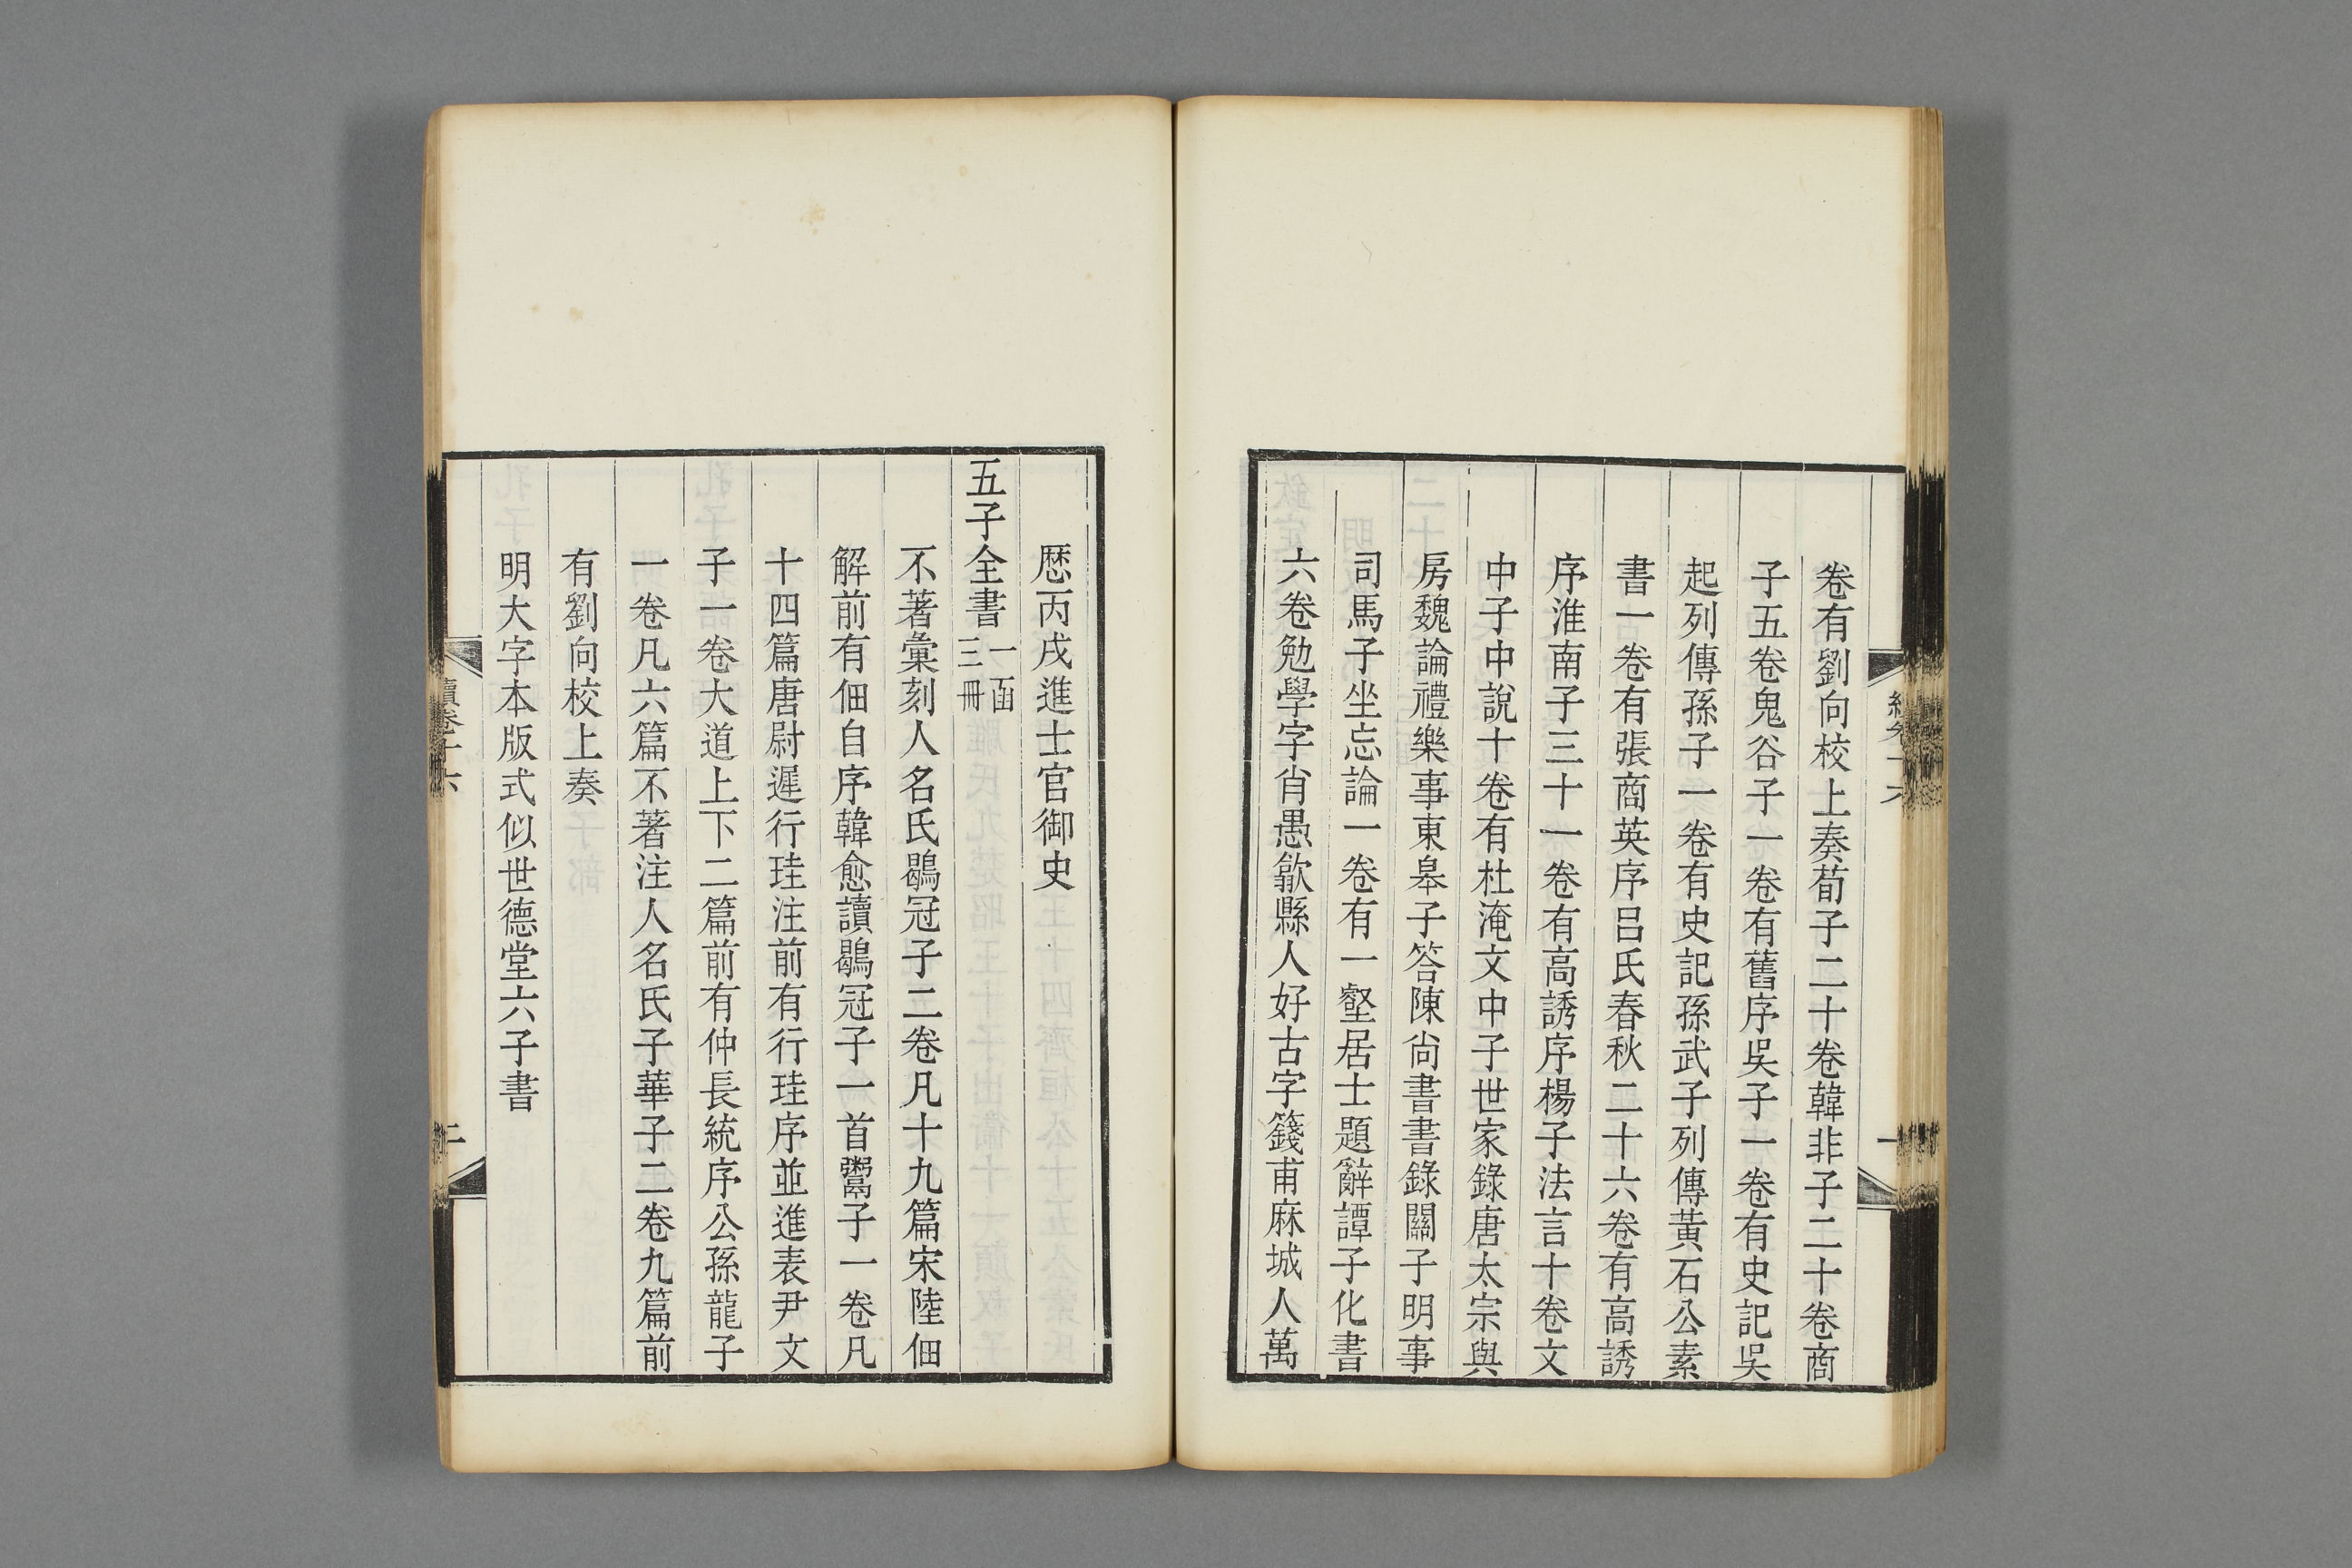 卷有劉向校上奏荀子二十卷韓非子二十卷商
子五卷鬼谷子一卷有舊序吳子一卷有史記吳
起列傳孫子一卷有史記孫武子列傳黃石公素
書一卷有張商英序呂氏春秋二十六卷有高誘
序淮南子三十一卷有高誘序楊子法言十卷文
中子中說十卷有杜淹文中子世家錄唐太宗與
房魏論禮樂事東皋子答陳尙書書錄關子明事
司馬子坐忘論一卷有一壑居士題辭譚子化書
六卷勉學字肖愚歙縣人好古字籛甫麻城人萬
厯丙戌進士官御史
五子全書一函三冊
不著彙刻人名氏鶡冠子二卷凡十九篇宋陸佃
解前有佃自序韓愈讀鶡冠子一首鬻子一卷凡
十四篇唐尉遲行珪注前有行珪序並進表尹文
子一卷大道上下二篇前有仲長統序公孫龍子
一卷凡六篇不著注人名氏子華子二卷九篇前
有劉向校上奏
明大字本版式似世德堂六子書
續卷十六
二